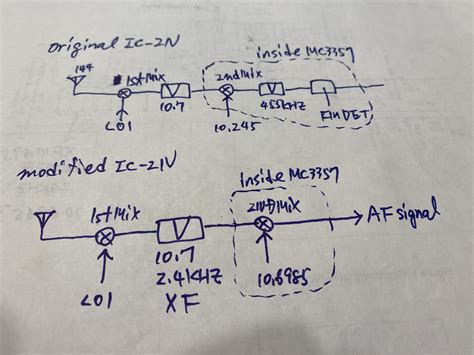 original IC-2N
inside MC3357
144
1st Mix
2nd Mix
10.7
455kHz
LO1
10.245
FM DET
modified IC-2N
inside MC3357
1st Mix
2nd Mix
AF signal
10.7
2.4KHz
XF
LO1
10.6985